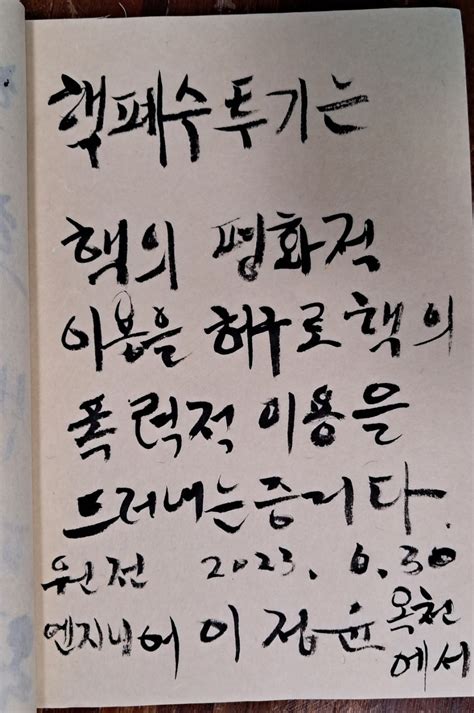 핵폐수투기는
핵의 평화적
이용을 허구로 핵의
폭력적 이용을
드러내는증거다.
원전 2023. 6. 30
엔지니어 이정윤 옥천
에서